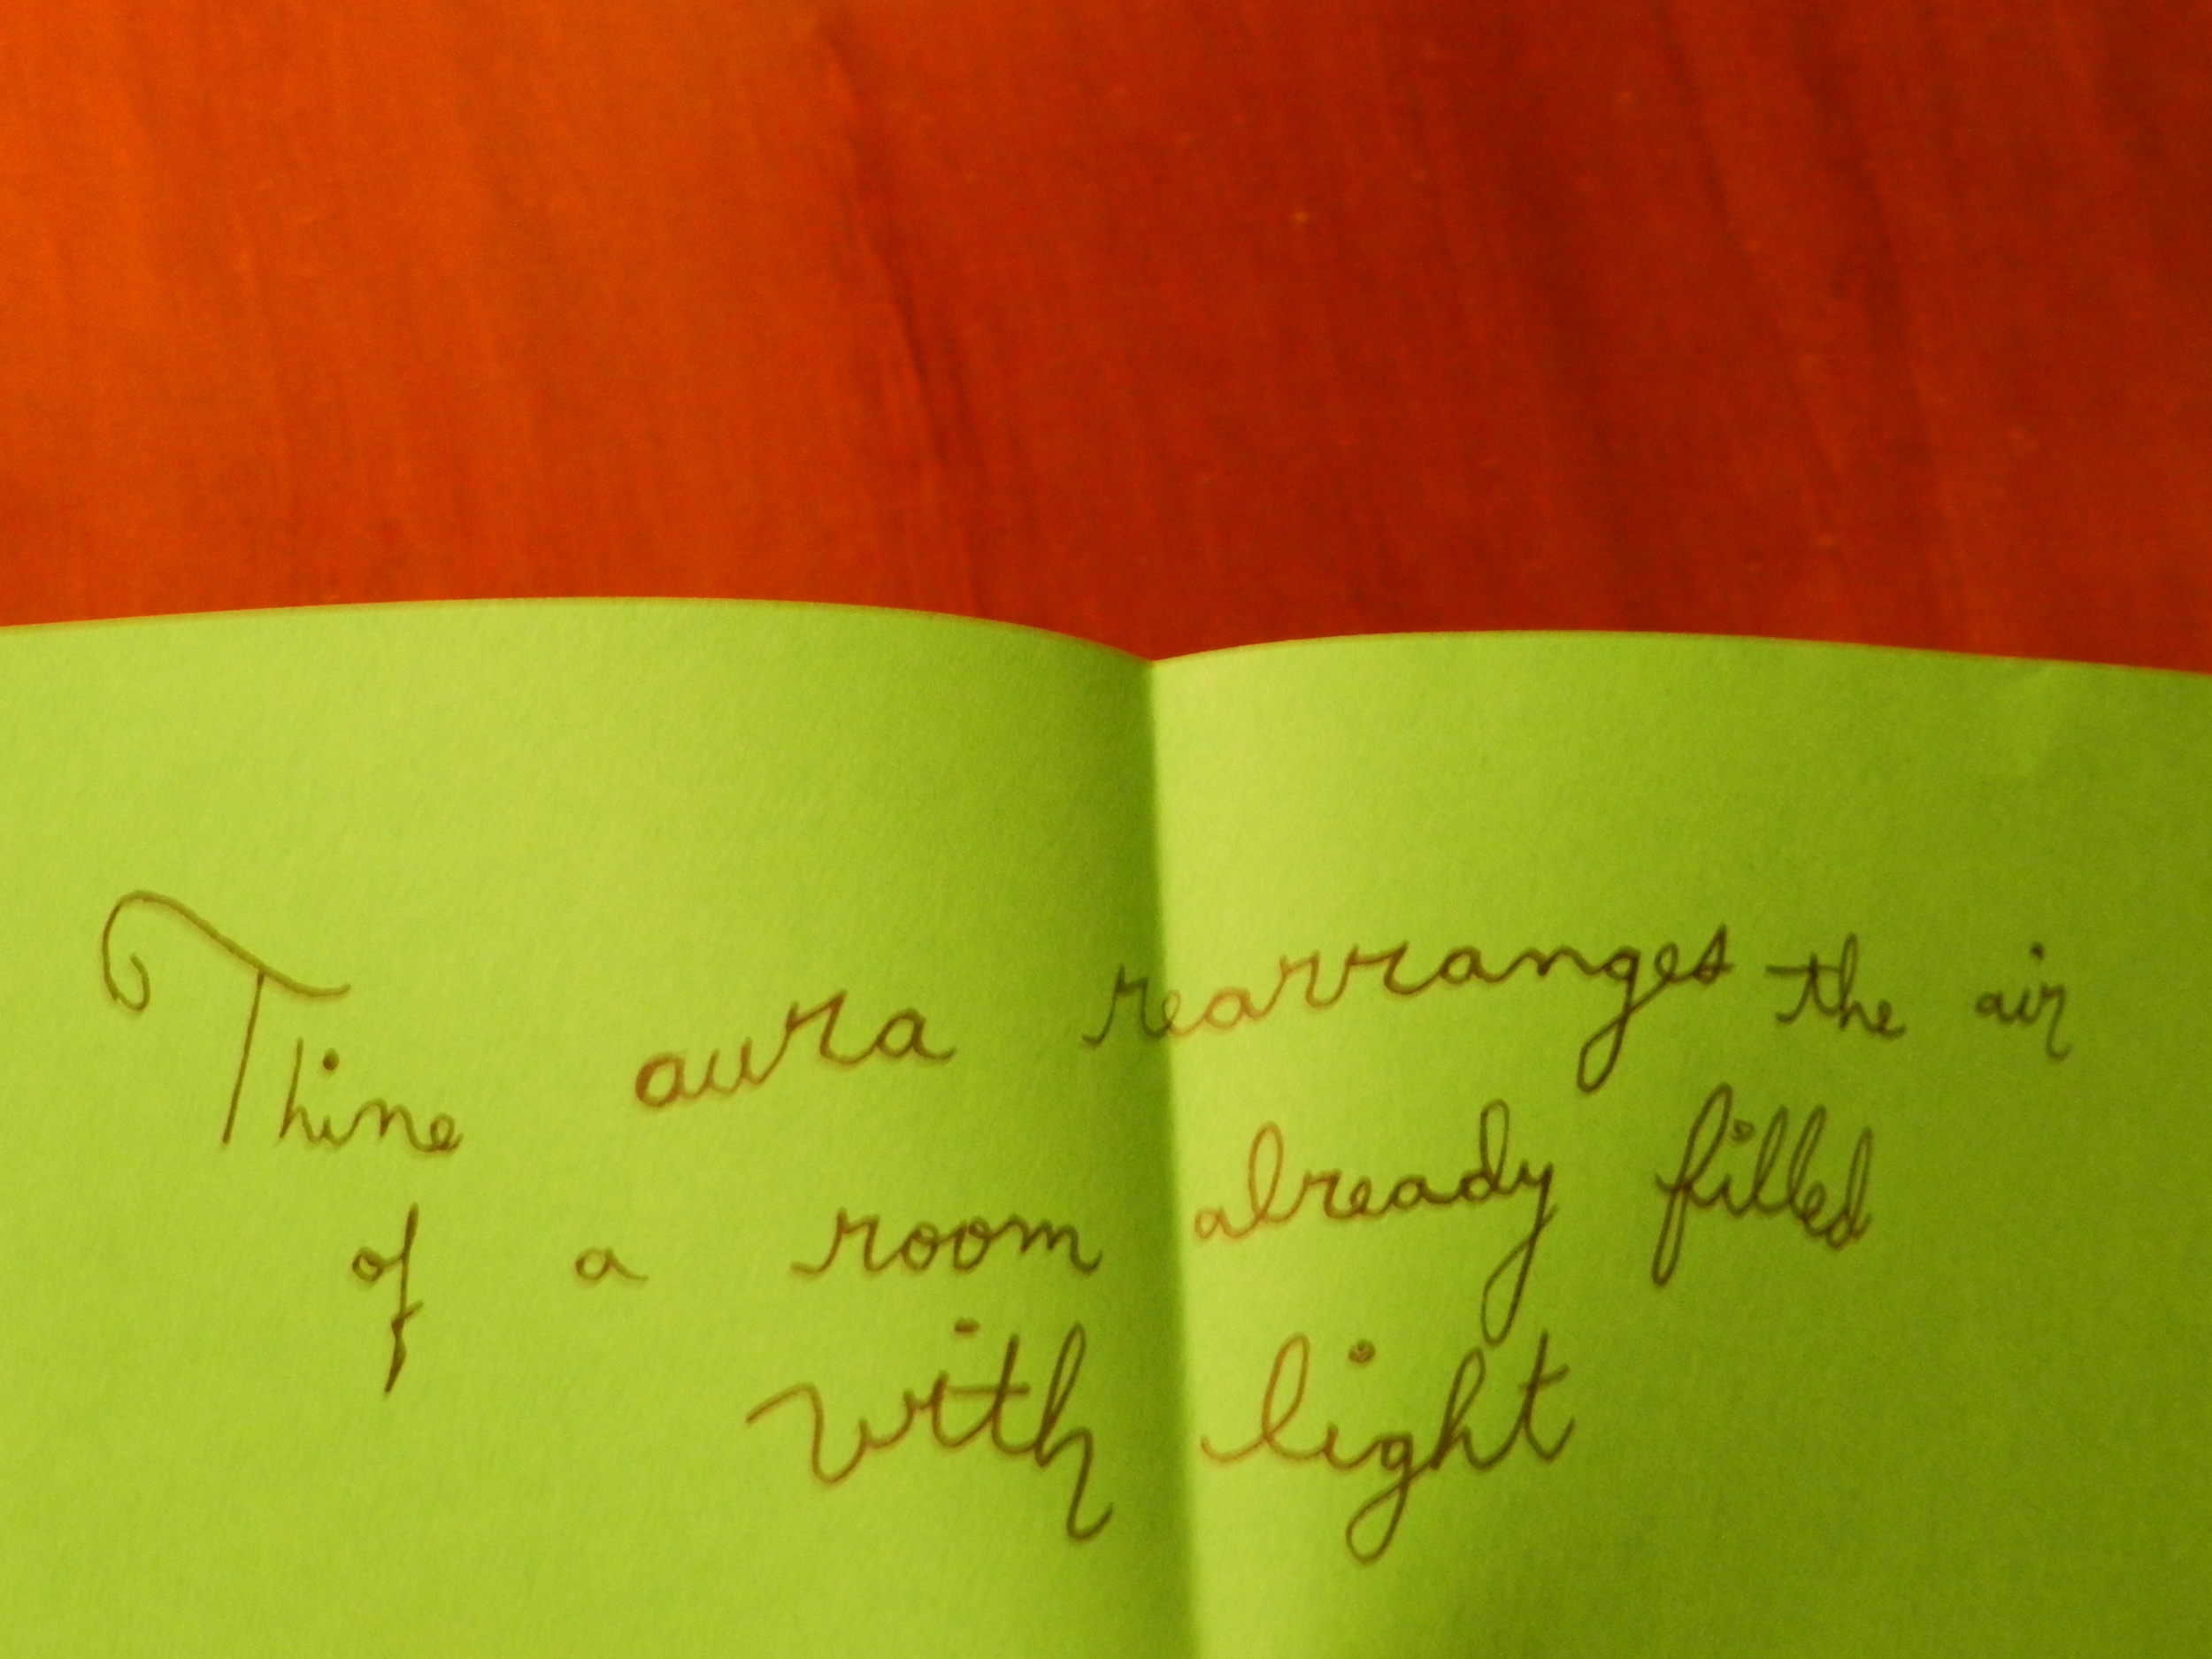 Thine aura rearranges the air
of a room already filled
with light